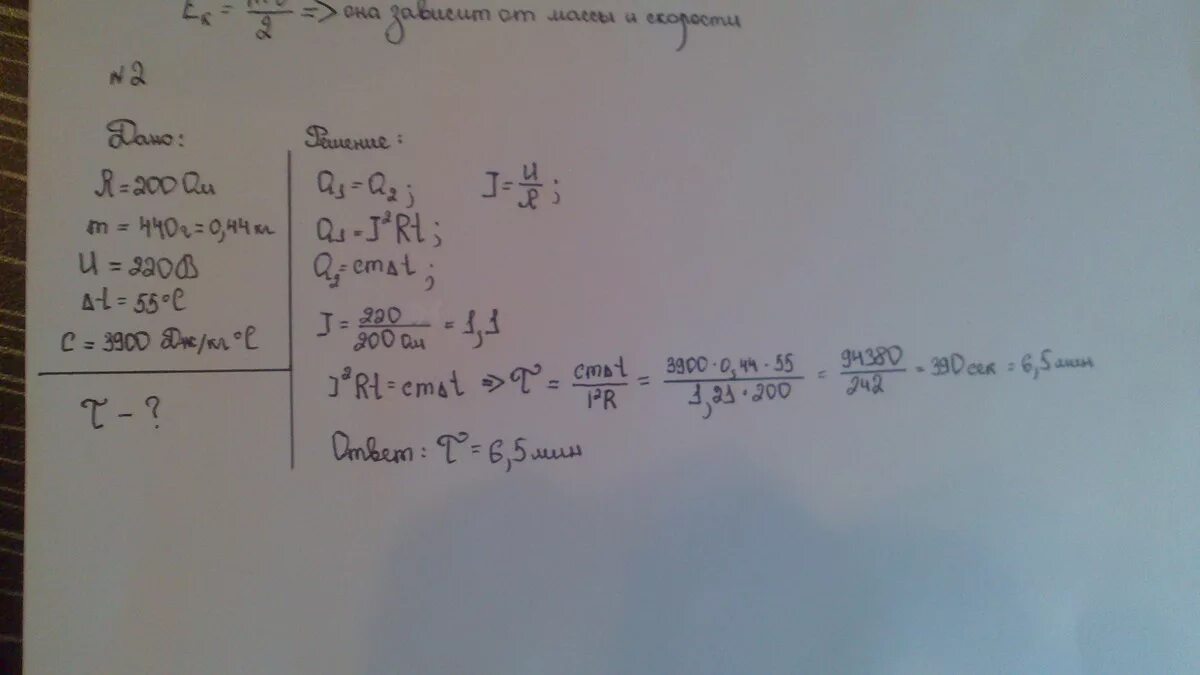 Eк = mv²/2 => она зависит от массы и скорости
N2
Дано:
R = 200 Ом
m = 440г = 0,44 кг
U = 220 В
Δt = 55°C
C = 3900 Дж/кг°C
τ - ?
Решение:
Q₁ = Q₂; I = U/R;
Q₁ = I²Rt;
Q₂ = cmΔt;
I = 220/200 Ом = 1,1
I²Rt = cmΔt => τ = cmΔt/I²R = 3900·0,44·55/1,21·200 = 94380/242 = 390 сек = 6,5 мин
Ответ: τ = 6,5 мин